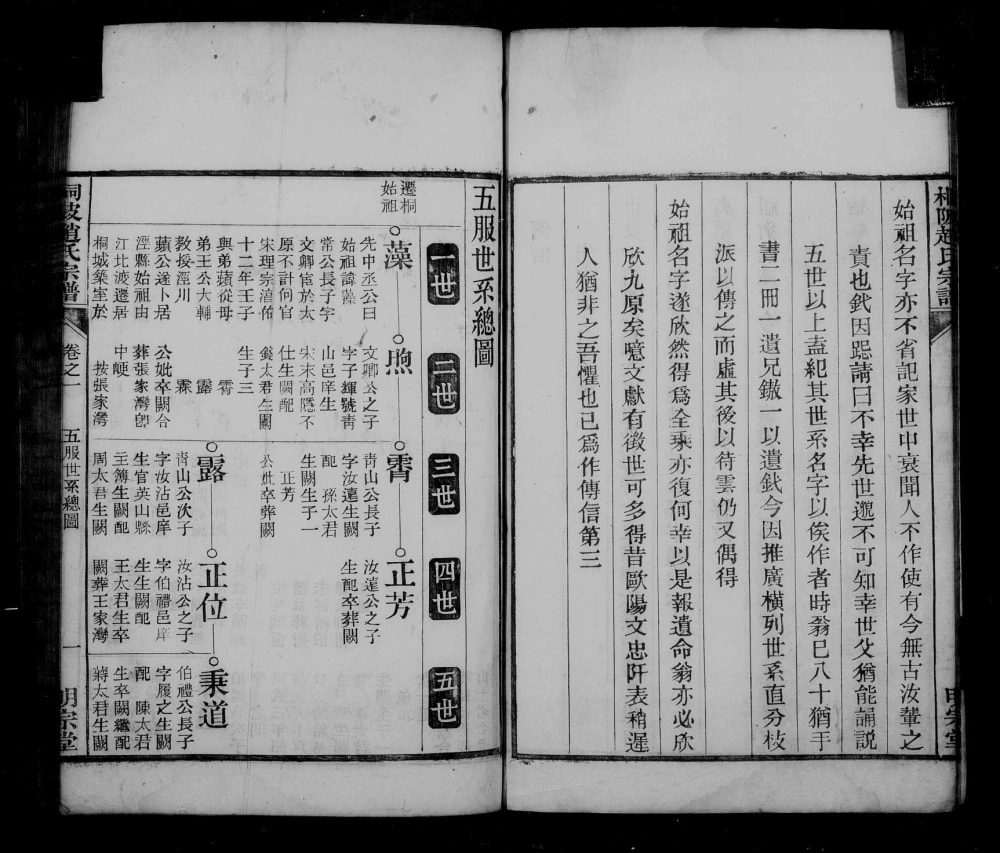 桐陂趙氏宗譜
明宗堂
始祖名字亦不省記家世中衰聞人不作使有今無古汝輩之
責也釴因跽請曰不幸先世邈不可知幸世父猶能誦説
五世以上盍紀其世系名字以俟作者時翁巳八十猶手
書二冊一遺兄鏾一以遺釴今因推廣橫列世系直分枝
派以傳之而虛其後以待雲仍又偶得
始祖名字遂欣然得爲全乘亦復何幸以是報遺命翁亦必欣
欣九原矣噫文獻有徵世可多得昔歐陽文忠阡表稍遲
人猶非之吾懼也已爲作傳信第三
五服世系總圖
一世
二世
三世
四世
五世
遷桐
始祖
藻
先中丞公曰
始祖諱藻
常公長子字
文卿宦於太
原不計何官
宋理宗淳佑
十二年壬子
與弟蘋從母
弟王公大輔
教授涇川
蘋公遂卜居
涇縣始祖由
江北渡遷居
桐城築室於
煦
文卿公之子
字子輝號青
山邑庠生
宋末高隱不
仕生闕配
錢太君生闕
生子三
霄
露
霖
公妣卒闕合
葬張家灣卽
中㟰
按張家灣
霄
青山公長子
字汝遠生闕
配 孫太君
生闕生子一
正芳
公妣卒葬闕
正芳
汝遠公之子
生配卒葬闕
露
青山公次子
字汝沾邑庠
生官英山縣
主簿生闕配
周太君生闕
正位
汝沾公之子
字伯禮邑庠
生生闕配
王太君生卒
闕葬王家灣
秉道
伯禮公長子
字履之生闕
配 陳太君
生卒闕繼配
蔣太君生闕
桐陂趙氏宗譜
卷之一
五服世系總圖
一
明宗堂